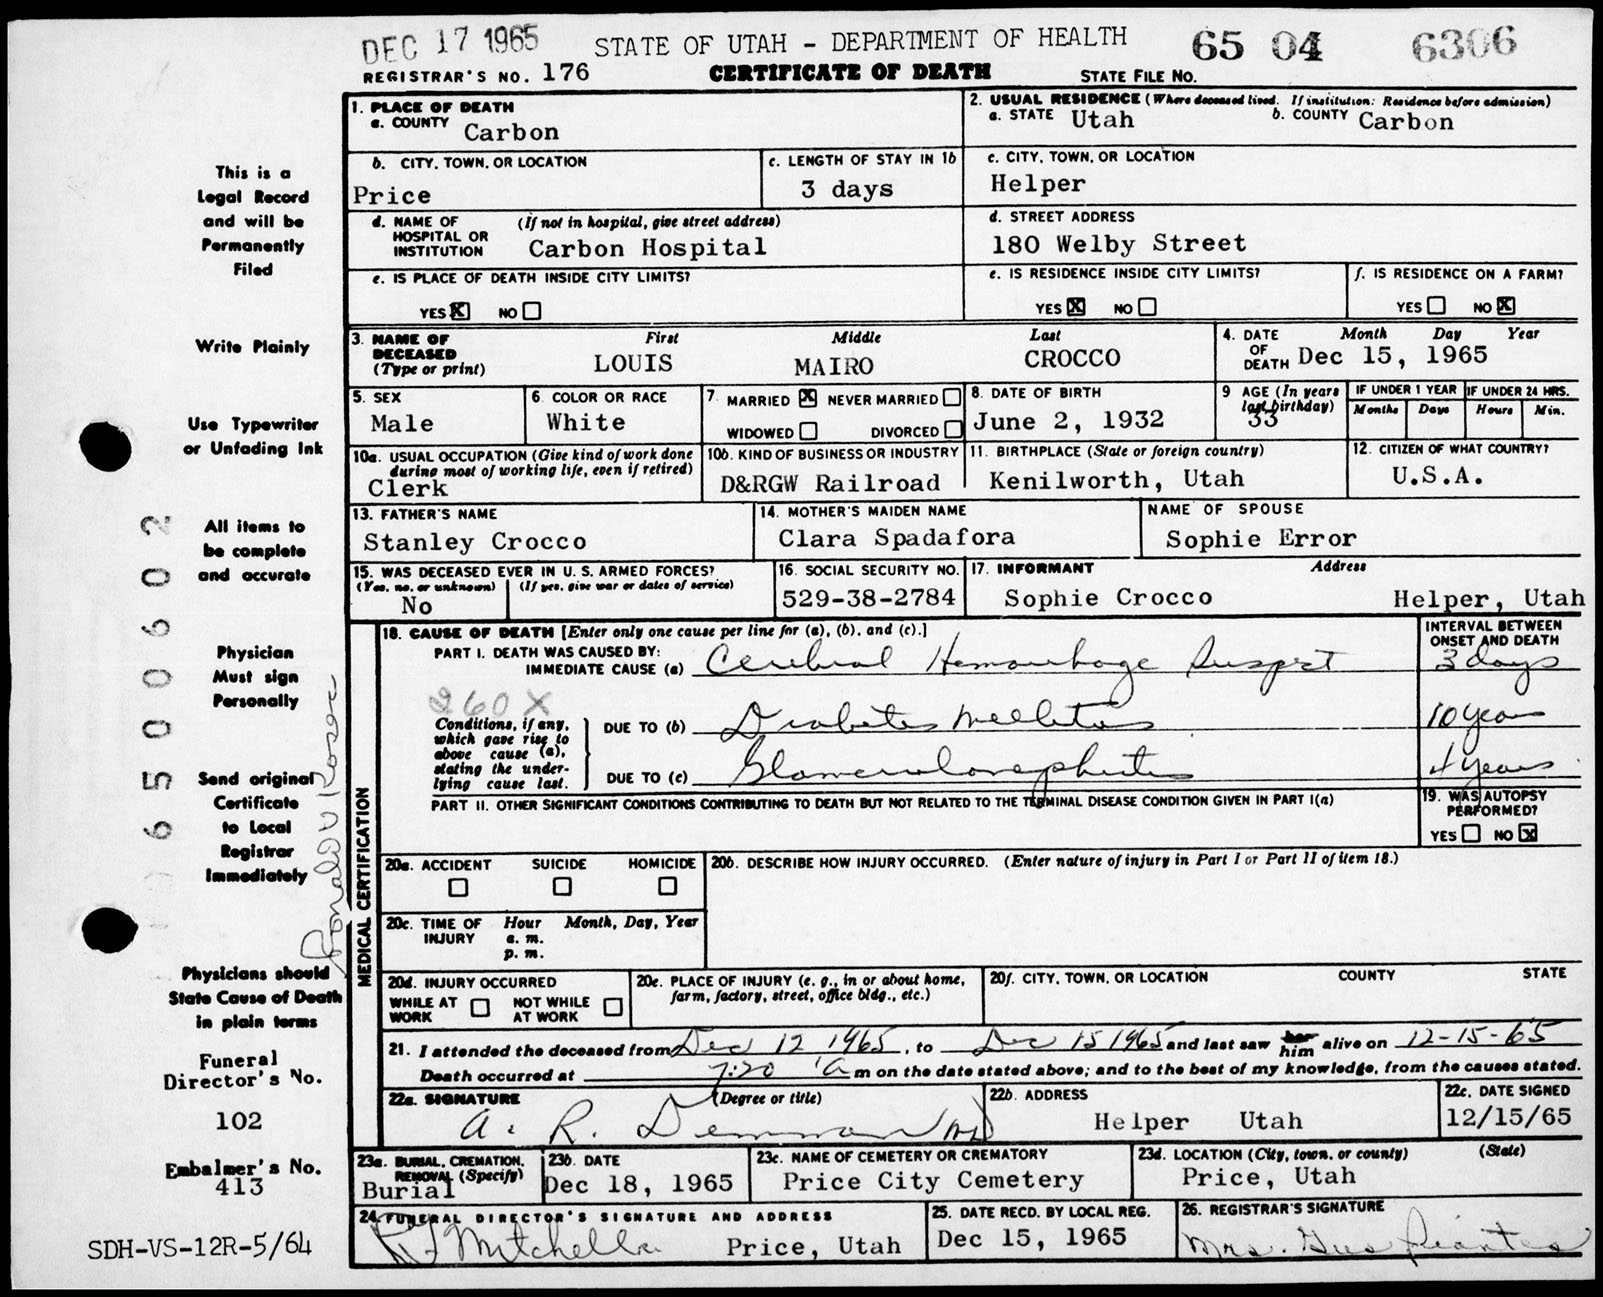 DEC 17 1965 STATE OF UTAH - DEPARTMENT OF HEALTH 65 04 6306
REGISTRAR'S NO. 176 CERTIFICATE OF DEATH STATE FILE NO.
This is a
Legal Record
and will be
Permanently
Filed
Write Plainly
Use Typewriter
or Unfading Ink
All items to
be complete
and accurate
Physician
Must sign
Personally
Send original
Certificate
to Local
Registrar
Immediately
Physicians should
State Cause of Death
in plain terms
Funeral
Director's No.
102
Embalmer's No.
413
SDH-VS-12R-5/64
6500602
1. PLACE OF DEATH
a. COUNTY Carbon
2. USUAL RESIDENCE (Where deceased lived. If institution: Residence before admission)
a. STATE Utah b. COUNTY Carbon
b. CITY, TOWN, OR LOCATION
Price
c. LENGTH OF STAY IN 1b
3 days
c. CITY, TOWN, OR LOCATION
Helper
d. NAME OF (If not in hospital, give street address)
HOSPITAL OR
INSTITUTION Carbon Hospital
d. STREET ADDRESS
180 Welby Street
e. IS PLACE OF DEATH INSIDE CITY LIMITS?
YES X NO
e. IS RESIDENCE INSIDE CITY LIMITS?
YES X NO
f. IS RESIDENCE ON A FARM?
YES NO X
3. NAME OF First Middle Last
DECEASED
(Type or print) LOUIS MAIRO CROCCO
4. DATE Month Day Year
OF
DEATH Dec 15, 1965
5. SEX
Male
6. COLOR OR RACE
White
7. MARRIED X NEVER MARRIED
WIDOWED DIVORCED
8. DATE OF BIRTH
June 2, 1932
9 AGE (In years
last birthday)
33
IF UNDER 1 YEAR IF UNDER 24 HRS.
Months Days Hours Min.
10a. USUAL OCCUPATION (Give kind of work done
during most of working life, even if retired)
Clerk
10b. KIND OF BUSINESS OR INDUSTRY
D&RGW Railroad
11. BIRTHPLACE (State or foreign country)
Kenilworth, Utah
12. CITIZEN OF WHAT COUNTRY?
U.S.A.
13. FATHER'S NAME
Stanley Crocco
14. MOTHER'S MAIDEN NAME
Clara Spadafora
NAME OF SPOUSE
Sophie Error
15. WAS DECEASED EVER IN U.S. ARMED FORCES?
(Yes, no, or unknown) (If yes, give war or dates of service)
No
16. SOCIAL SECURITY NO.
529-38-2784
17. INFORMANT Address
Sophie Crocco Helper, Utah
MEDICAL CERTIFICATION
18. CAUSE OF DEATH [Enter only one cause per line for (a), (b), and (c).]
INTERVAL BETWEEN
ONSET AND DEATH
PART I. DEATH WAS CAUSED BY:
IMMEDIATE CAUSE (a) Cerebral Hemorrhage Suspect 3 days
260X
Conditions, if any,
which gave rise to
above cause (a),
stating the under-
lying cause last.
DUE TO (b) Diabetes Mellitus 10 years
DUE TO (c) Glomerulonephritis 4 years
PART II. OTHER SIGNIFICANT CONDITIONS CONTRIBUTING TO DEATH BUT NOT RELATED TO THE TERMINAL DISEASE CONDITION GIVEN IN PART I(a)
19. WAS AUTOPSY
PERFORMED?
YES NO X
20a. ACCIDENT SUICIDE HOMICIDE
20b. DESCRIBE HOW INJURY OCCURRED. (Enter nature of injury in Part I or Part II of item 18.)
20c. TIME OF Hour Month, Day, Year
INJURY a. m.
p. m.
20d. INJURY OCCURRED
WHILE AT WORK NOT WHILE AT WORK
20e. PLACE OF INJURY (e. g., in or about home,
farm, factory, street, office bldg., etc.)
20f. CITY, TOWN, OR LOCATION COUNTY STATE
21. I attended the deceased from Dec 12 1965, to Dec 15 1965 and last saw her him alive on 12-15-65
Death occurred at 7:20 A m on the date stated above; and to the best of my knowledge, from the causes stated.
22a. SIGNATURE (Degree or title)
A. R. Demman MD
22b. ADDRESS
Helper Utah
22c. DATE SIGNED
12/15/65
23a. BURIAL, CREMATION,
REMOVAL (Specify)
Burial
23b. DATE
Dec 18, 1965
23c. NAME OF CEMETERY OR CREMATORY
Price City Cemetery
23d. LOCATION (City, town, or county) (State)
Price, Utah
24. FUNERAL DIRECTOR'S SIGNATURE AND ADDRESS
Mitchell Price, Utah
25. DATE RECD. BY LOCAL REG.
Dec 15, 1965
26. REGISTRAR'S SIGNATURE
Mrs. Gus